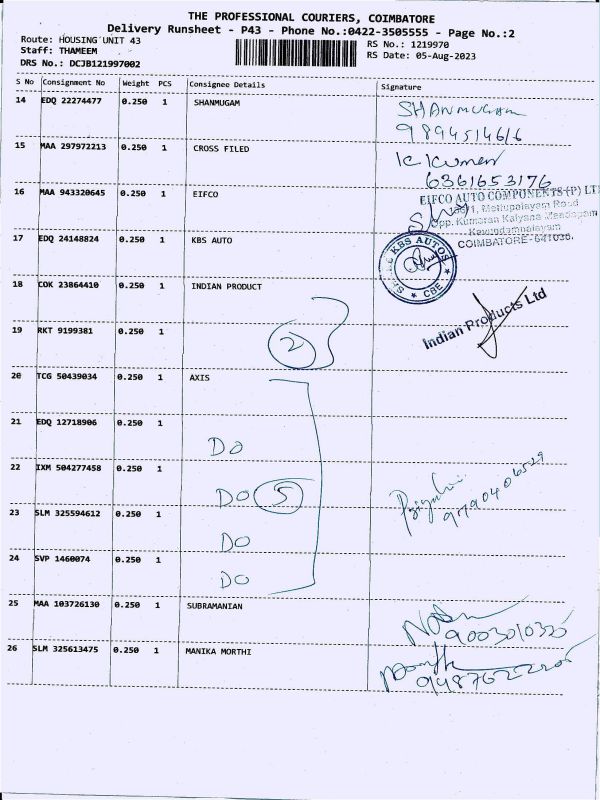 THE PROFESSIONAL COURIERS, COIMBATORE
Delivery Runsheet - P43 - Phone No.:0422-3505555 - Page No.:2
Route: HOUSING UNIT 43
RS No.: 1219970
Staff: THAMEEM
RS Date: 05-Aug-2023
DRS No.: DCJB121997002
S No Consignment No Weight PCS Consignee Details Signature
14 EDQ 22274477 0.250 1 SHANMUGAM SHANMUGAM
9894514616
15 MAA 297972213 0.250 1 CROSS FILED K Kumar
6361653176
16 MAA 943320645 0.250 1 EIFCO
EIFCO AUTO COMPONENTS (P) LT
Mettupalayam Road
Opp. Kumaran Kalyana Mandapam
Kavundampalayam
COIMBATORE-641030.
17 EDQ 24148824 0.250 1 KBS AUTO
KBS AUTOS
CBE
18 COK 23864410 0.250 1 INDIAN PRODUCT
Indian Products Ltd
19 RKT 9199381 0.250 1
2
20 TCG 50439034 0.250 1 AXIS
21 EDQ 12718906 0.250 1
DO
22 IXM 504277458 0.250 1
DO 5
9790406529
23 SLM 325594612 0.250 1
DO
24 SVP 1460074 0.250 1
DO
25 MAA 103726130 0.250 1 SUBRAMANIAN
9003010325
26 SLM 325613475 0.250 1 MANIKA MORTHI